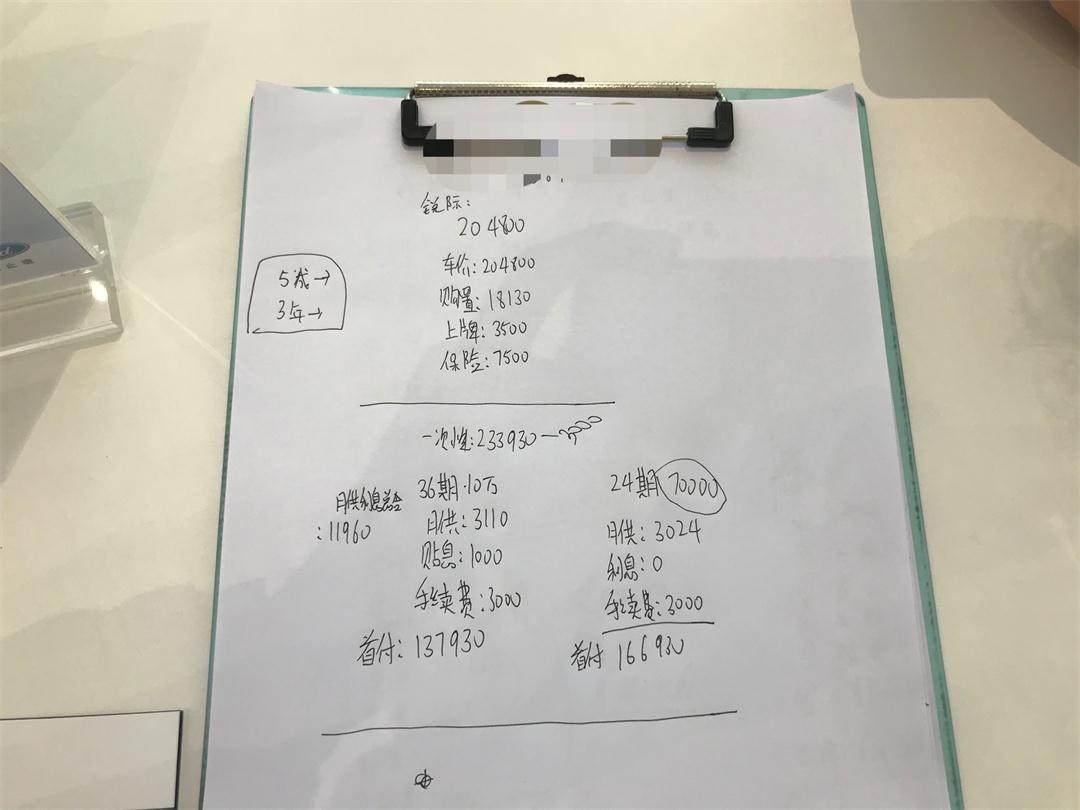 锐际:
204800
车价:204800
购置:18130
上牌:3500
保险:7500
5成→
3年→
一次性:233930—
月供利息总金
:11960
36期·10万
月供:3110
贴息:1000
手续费:3000
首付:137930
24期 70000
月供:3024
利息:0
手续费:3000
首付 166930